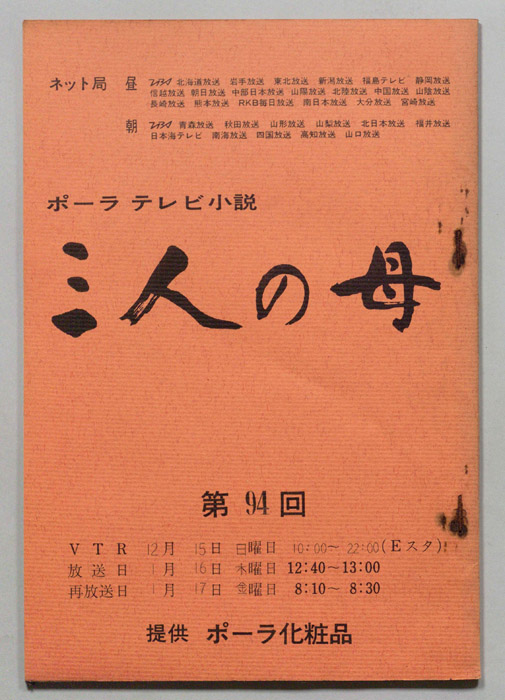 ネット局 昼 北海道放送 岩手放送 東北放送 新潟放送 福島テレビ 静岡放送
信越放送 朝日放送 中部日本放送 山陽放送 北陸放送 中国放送 山陰放送
長崎放送 熊本放送 RKB毎日放送 南日本放送 大分放送 宮崎放送
朝 青森放送 秋田放送 山形放送 山梨放送 北日本放送 福井放送
日本海テレビ 南海放送 四国放送 高知放送 山口放送
ポーラ テレビ小説
三人の母
第 94 回
VTR 12月 15日 日曜日 10:00～ 22:00(Eスタ)
放送日 1月 16日 木曜日 12:40～13:00
再放送日 1月 17日 金曜日 8:10～ 8:30
提供 ポーラ化粧品